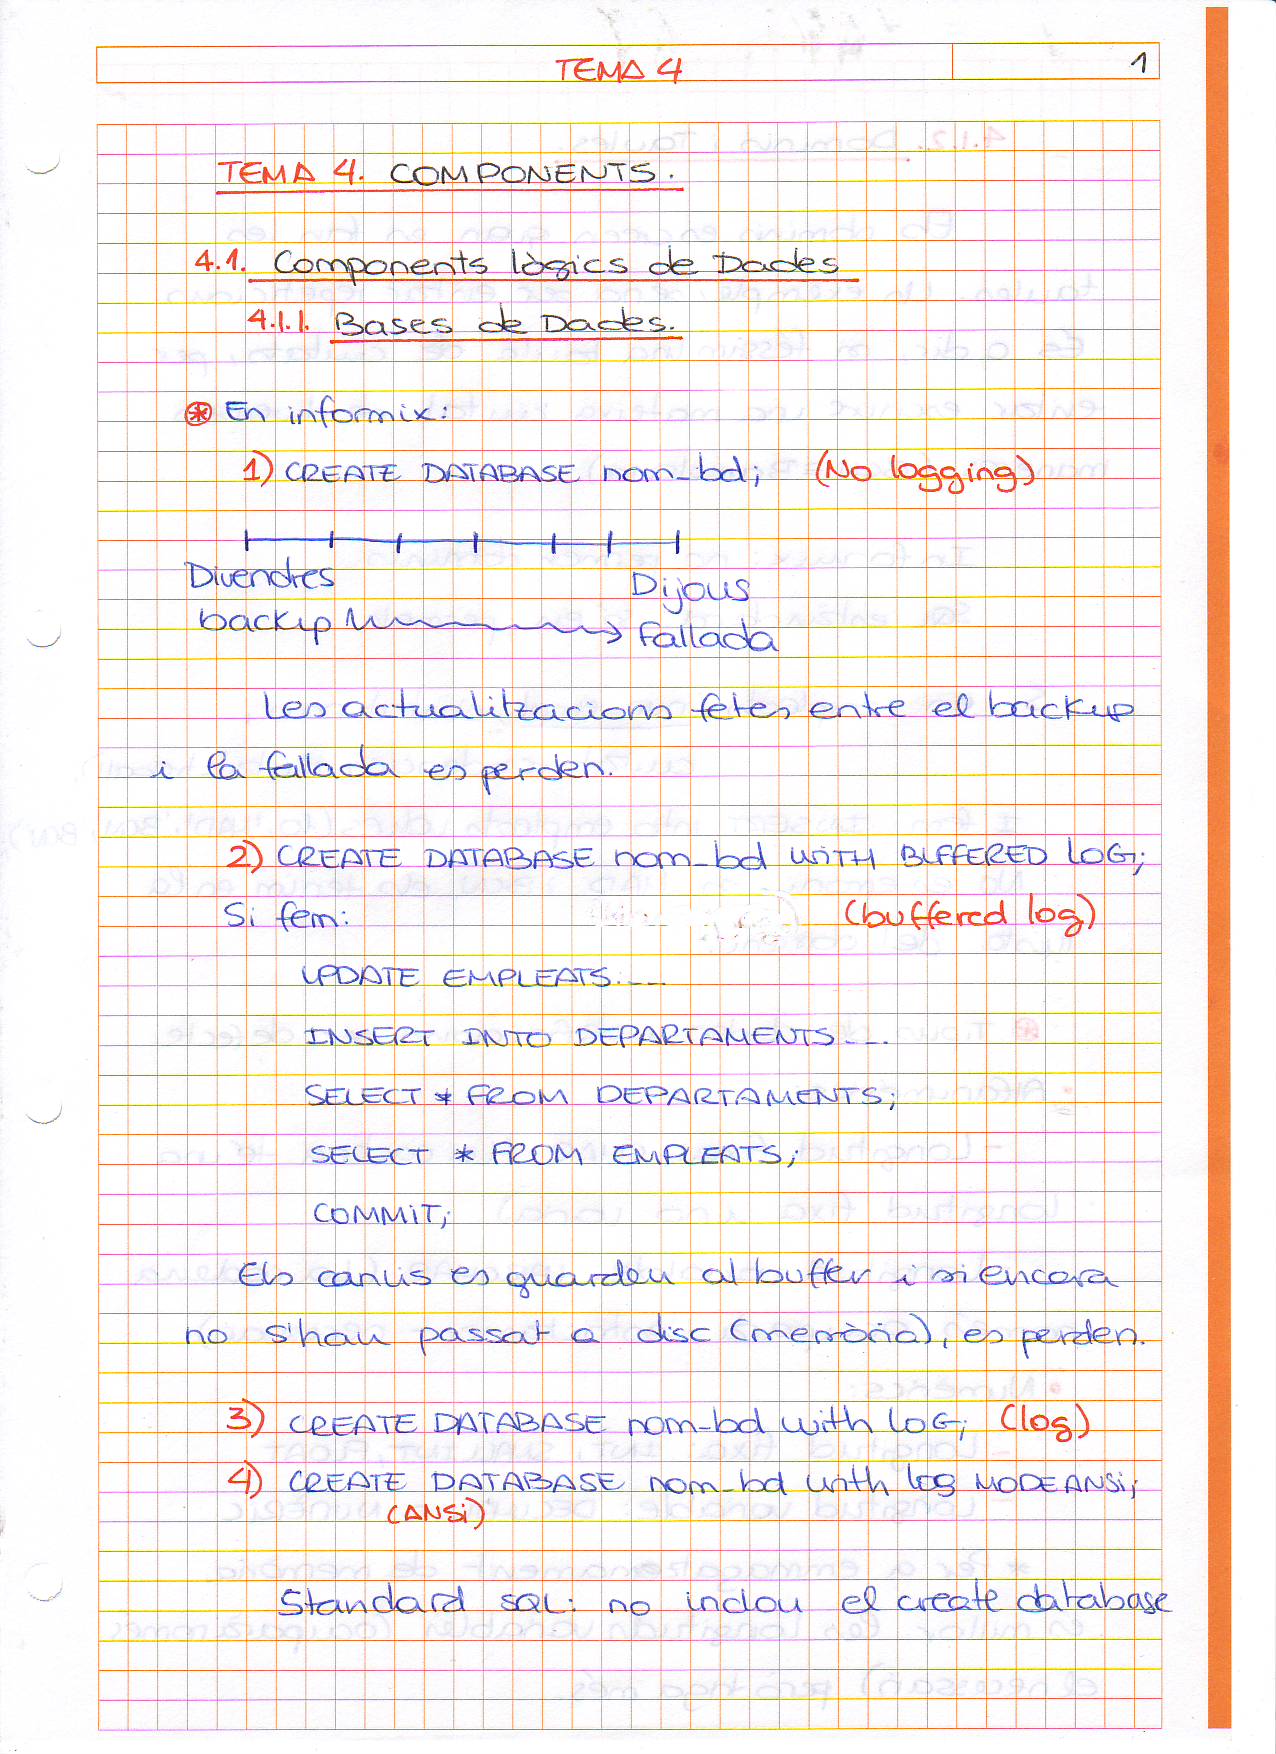 TEMA 4
1
TEMA 4. COMPONENTS.
4.1. Components lògics de Dades
4.1.1. Bases de Dades.
* En informix:
1) CREATE DATABASE nom_bd; (No logging)
Divendres
Dijous
backup
fallada
Les actualitzacions fetes entre el backup
i la fallada es perden.
2) CREATE DATABASE nom_bd WITH BUFFERED LOG;
Si fem: (buffered log)
UPDATE EMPLEATS.....
INSERT INTO DEPARTAMENTS....
SELECT * FROM DEPARTAMENTS;
SELECT * FROM EMPLEATS;
COMMIT;
Els canvis es guarden al buffer i si encara
no s'han passat a disc (memòria), es perden.
3) CREATE DATABASE nom_bd with LOG; (log)
4) CREATE DATABASE nom_bd with log MODE ANSI;
(ANSI)
Standard SQL: no inclou el create database